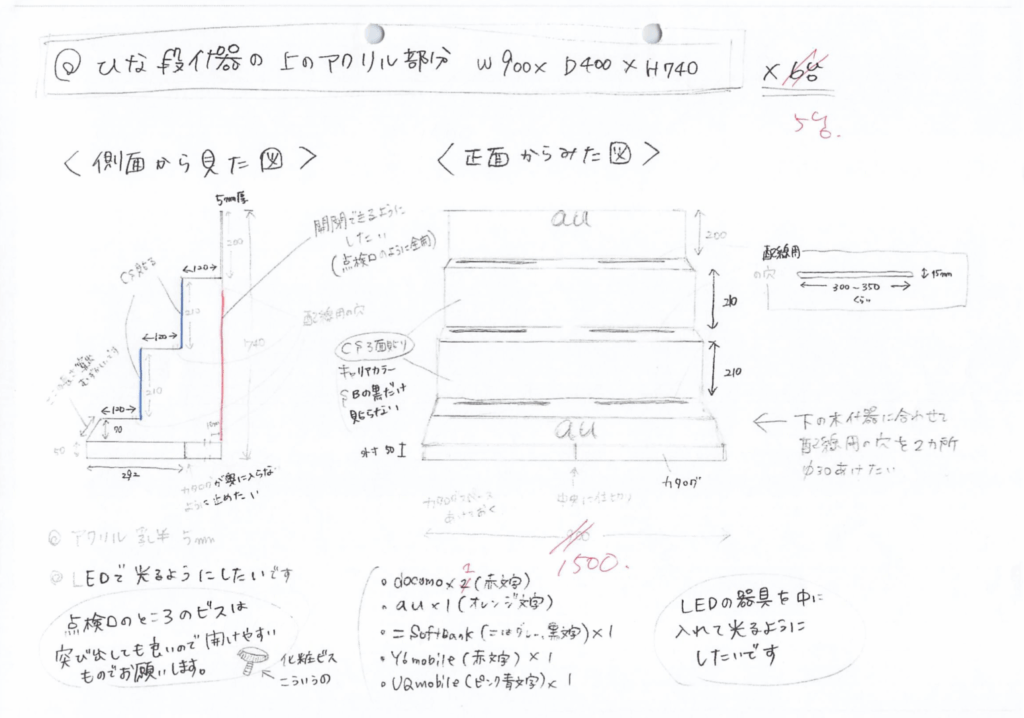 ひな段什器の上のアクリル部分 W900× D400×H740
×6台
5台.
<側面から見た図>
5mm厚
200
←120→
CS貼る
210
←120→
210
←120→
70
50
292
740
開閉できるように
したい
(点検口のように全開)
配線用の穴
カタログが奥に入らない
ように止めたい
<正面からみた図>
au
200
210
210
CS3面貼り
キャリアカラー
SBの黒だけ
貼らない
au
外寸50
カタログ
カタログスペース
あけておく
中央に仕切り
900
1500.
配線用
の穴
300~350
くらい
15mm
← 下の木什器に合わせて
配線用の穴を2カ所
φ30あけたい
◎ アクリル 乳半 5mm
◎ LEDで光るようにしたいです
点検口のところのビスは
突び出しても良いので開けやすい
ものでお願いします。
化粧ビス
こういうの
• docomo×2 1(赤文字)
• au×1(オレンジ文字)
• =SoftBank(=はグレー、黒文字)×1
• Y!mobile(赤文字)×1
• UQmobile(ピンク青文字)×1
LEDの器具を中に
入れて光るように
したいです